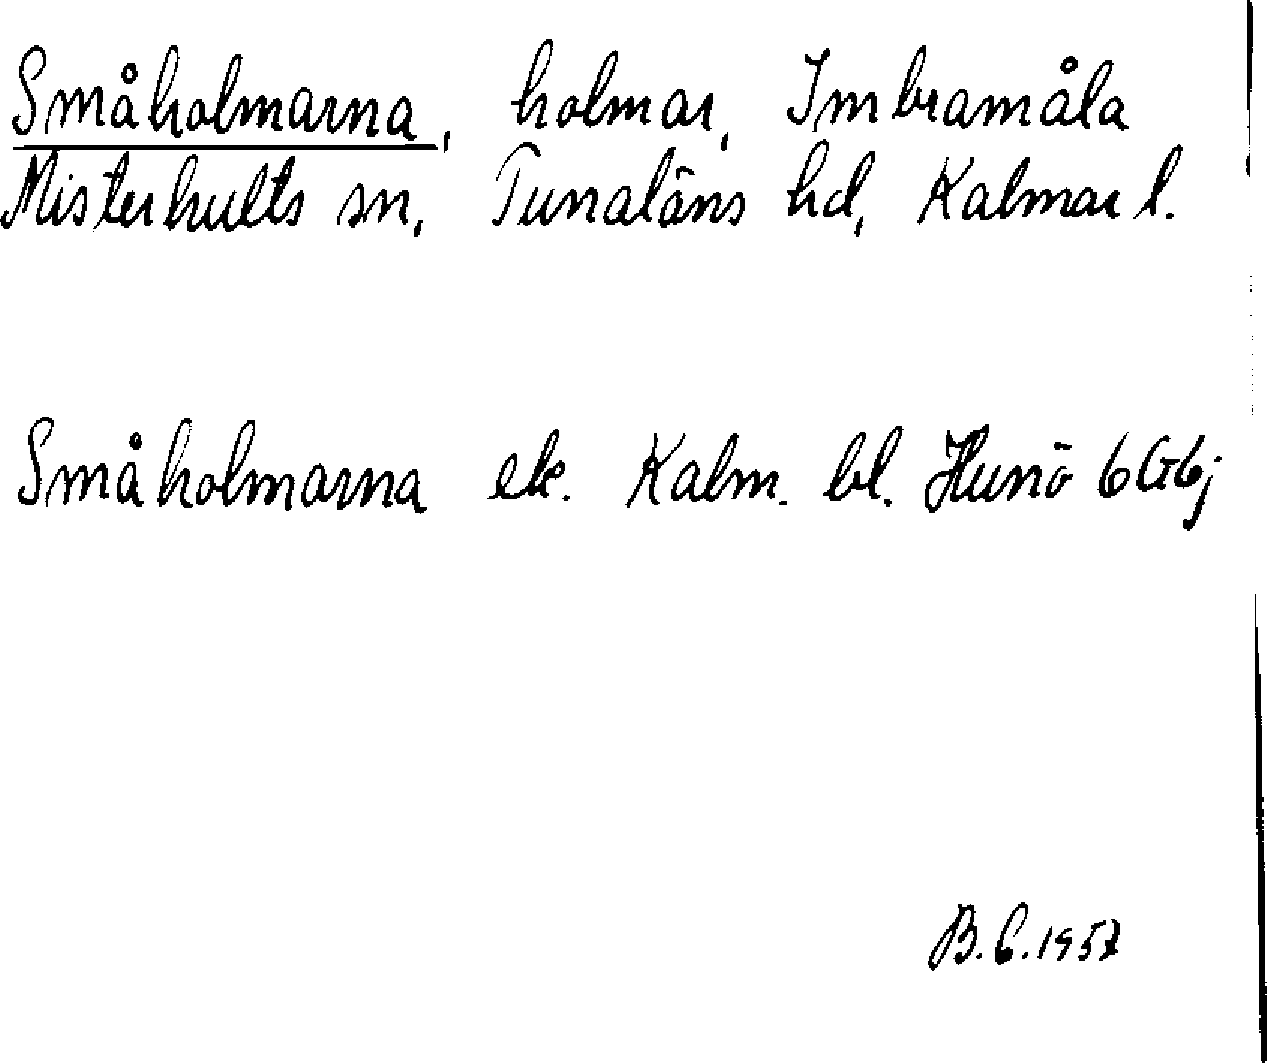 Småholmarna, holmar, Imbramåla
Misterhults sn, Tunaläns hd, Kalmar l.
Småholmarna ek. Kalm. bl. Hunö 6G6j
B.C. 1957